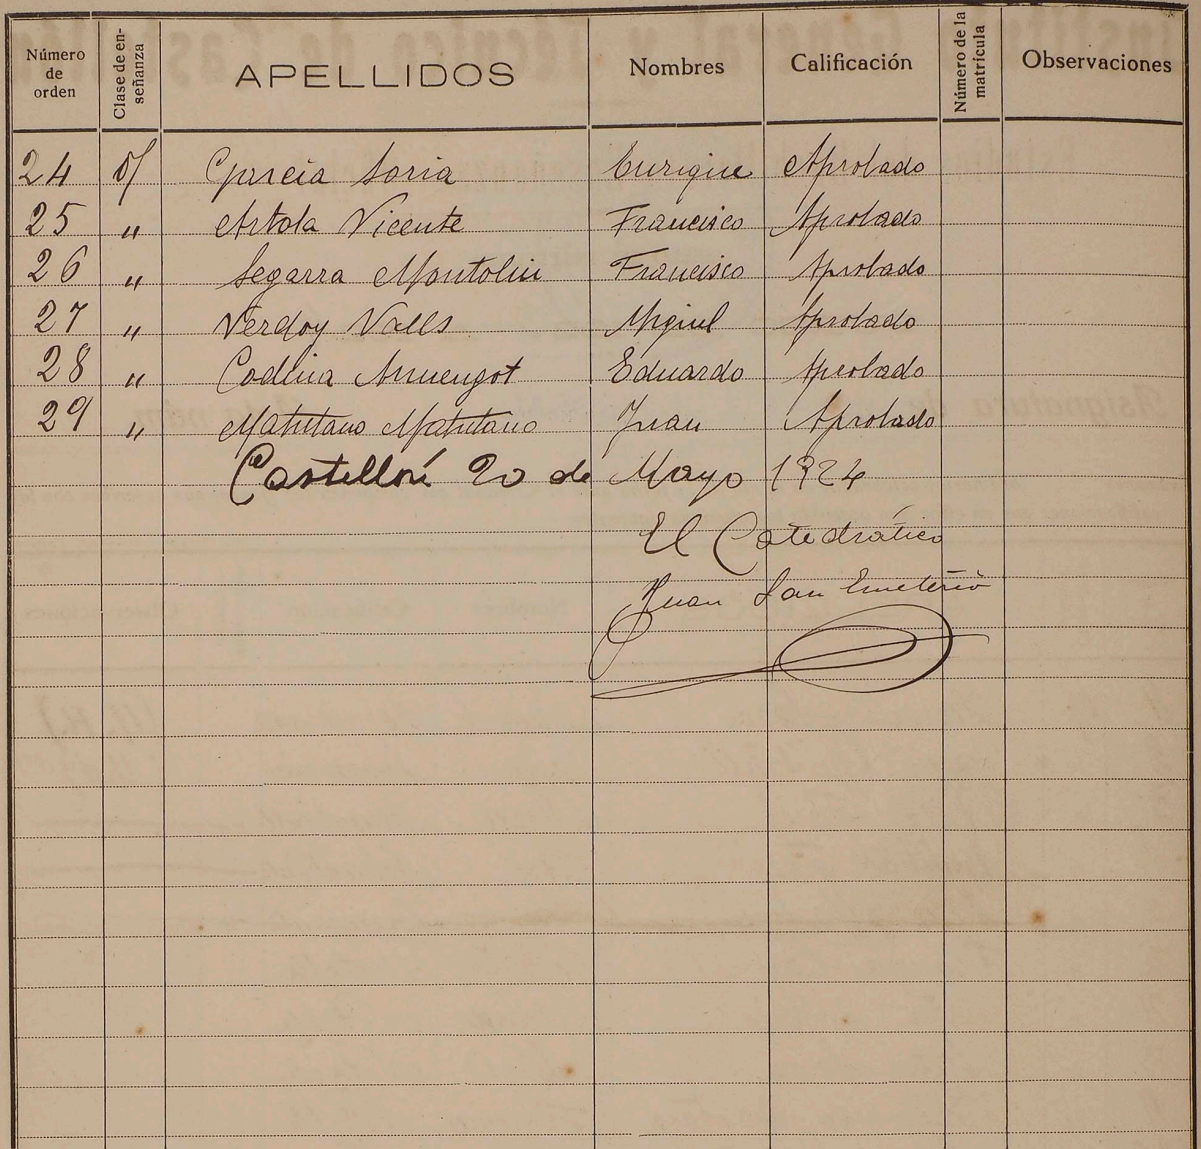 Número de orden Clase de en-señanza APELLIDOS Nombres Calificación Número de la matrícula Observaciones
24 O/ García Soria Enrique Aprobado
25 " Artola Vicente Francisco Aprobado
26 " Segarra Montoliu Francisco Aprobado
27 " Verdoy Valls Miguel Aprobado
28 " Codina Armengot Eduardo Aprobado
29 " Matutano Matutano Juan Aprobado
Castellón 20 de Mayo 1924
El Catedrático
Juan San Emeterio